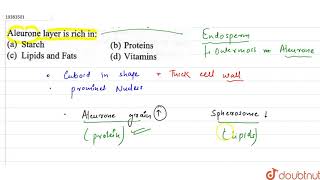 10383501
Aleurone layer is rich in:
(a) Starch (b) Proteins
(c) Lipids and Fats (d) Vitamins
Endosperm
↳ Outermost = Aleurone
• Cuboid in shape + Thick cell wall
• prominent Nucleus
Aleurone grain ↑ Spherosome ↓
(protein) (Lipids)
doubtnut